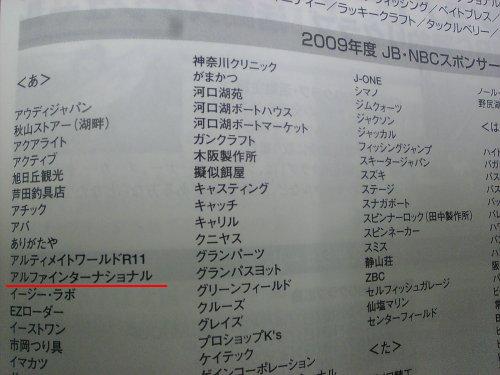 ラッキークラフト／タックルベリー／
2009年度 JB・NBCスポンサー
＜あ＞
アウディジャパン
秋山ストアー（湖畔）
アクアライト
アクティブ
旭日丘観光
芦田釣具店
アチック
アバ
ありがたや
アルティメイトワールドR11
アルファインターナショナル
イージー・ラボ
EZローダー
イーストワン
市岡つり具
イマカツ
神奈川クリニック
がまかつ
河口湖苑
河口湖ボートハウス
河口湖ボートマーケット
ガンクラフト
木阪製作所
擬似餌屋
キャスティング
キャッチ
キャリル
クニヤス
グランパーツ
グランパスヨット
グリーンフィールド
クルーズ
グレイズ
プロショップK's
ケイテック
ゲインコーポレーション
J-ONE
シマノ
ジムクォーツ
ジャクソン
ジャッカル
フィッシングジャンプ
スキータージャパン
スズキ
ステージ
スナガボート
スピンナーロック（田中製作所）
スピンネーカー
スミス
静山荘
ZBC
セルフィッシュガレージ
仙塩マリン
センターフィールド
＜た＞